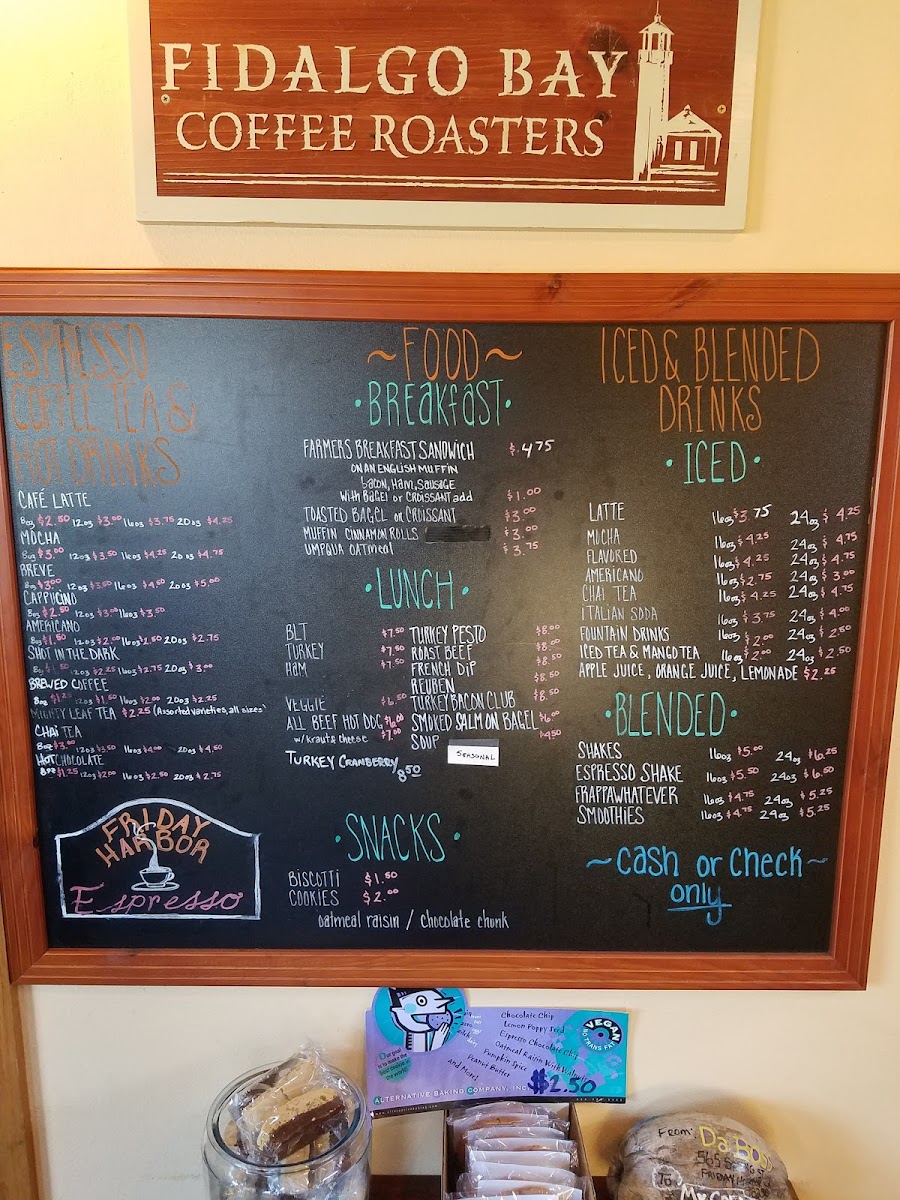 FIDALGO BAY
COFFEE ROASTERS
ESPRESSO
COFFEE TEA &
HOT DRINKS
CAFÉ LATTE
8oz $2.50 12oz $3.00 16oz $3.75 20oz $4.25
MOCHA
8oz $3.00 12oz $3.50 16oz $4.25 20oz $4.75
BREVE
8oz $3.00 12oz $3.50 16oz $4.50 20oz $5.00
CAPPUCINO
8oz $2.50 12oz $3.00 16oz $3.50
AMERICANO
8oz $1.50 12oz $2.00 16oz $2.50 20oz $2.75
SHOT IN THE DARK
8oz $1.50 12oz $2.25 16oz $2.75 20oz $3.00
BREWED COFFEE
8oz $1.25 12oz $1.50 16oz $2.00 20oz $2.25
MIGHTY LEAF TEA $2.25 (Assorted varieties, all sizes)
CHAI TEA
8oz $3.00 12oz $3.50 16oz $4.00 20oz $4.50
HOT CHOCOLATE
8oz $1.25 12oz $2.00 16oz $2.50 20oz $2.75
FRIDAY
HARBOR
Espresso
~FOOD~
•BREAKFAST•
FARMERS BREAKFAST SANDWICH $.4.75
ON AN ENGLISH MUFFIN
bacon, Ham, SAUSAGE
With BAGEL or CROISSANT add $1.00
TOASTED BAGEL or CROISSANT $3.00
MUFFIN CINNAMON ROLLS $3.00
UMPQUA OATMEAL $3.75
•LUNCH•
BLT $7.50
TURKEY $7.50
HAM $7.50
VEGGIE $6.50
ALL BEEF HOT DOG $6.00
w/kraut & cheese $7.00
TURKEY CRANBERRY 8.50
TURKEY PESTO $8.00
ROAST BEEF $8.00
FRENCH DIP $8.50
REUBEN $8.50
TURKEY BACON CLUB $8.50
SMOKED SALMON BAGEL $6.00
SOUP SEASONAL $4.50
•SNACKS•
BISCOTTI $1.50
COOKIES $2.00
oatmeal raisin / chocolate chunk
ICED & BLENDED
DRINKS
•ICED•
LATTE 16oz $3.75 24oz $4.25
MOCHA 16oz $4.25 24oz $4.75
FLAVORED 16oz $4.25 24oz $4.75
AMERICANO 16oz $2.75 24oz $3.00
CHAI TEA 16oz $4.25 24oz $4.75
ITALIAN SODA 16oz $3.75 24oz $4.00
FOUNTAIN DRINKS 16oz $2.00 24oz $2.50
ICED TEA & MANGO TEA 16oz $2.00 24oz $2.50
APPLE JUICE, ORANGE JUICE, LEMONADE $2.25
•BLENDED•
SHAKES 16oz $5.00 24oz $6.25
ESPRESSO SHAKE 16oz $5.50 24oz $6.50
FRAPPAWHATEVER 16oz $4.75 24oz $5.25
SMOOTHIES 16oz $4.75 24oz $5.25
~cash or check~
only
Our goal
is to make the
best cookie in
the world
Chocolate Chip
Lemon Poppy Seed
Espresso Chocolate Chip
Oatmeal Raisin With Walnuts
Pumpkin Spice
Peanut Butter
and More!
VEGAN
NO TRANS FAT
$2.50
ALTERNATIVE BAKING COMPANY, INC
FROM:
To